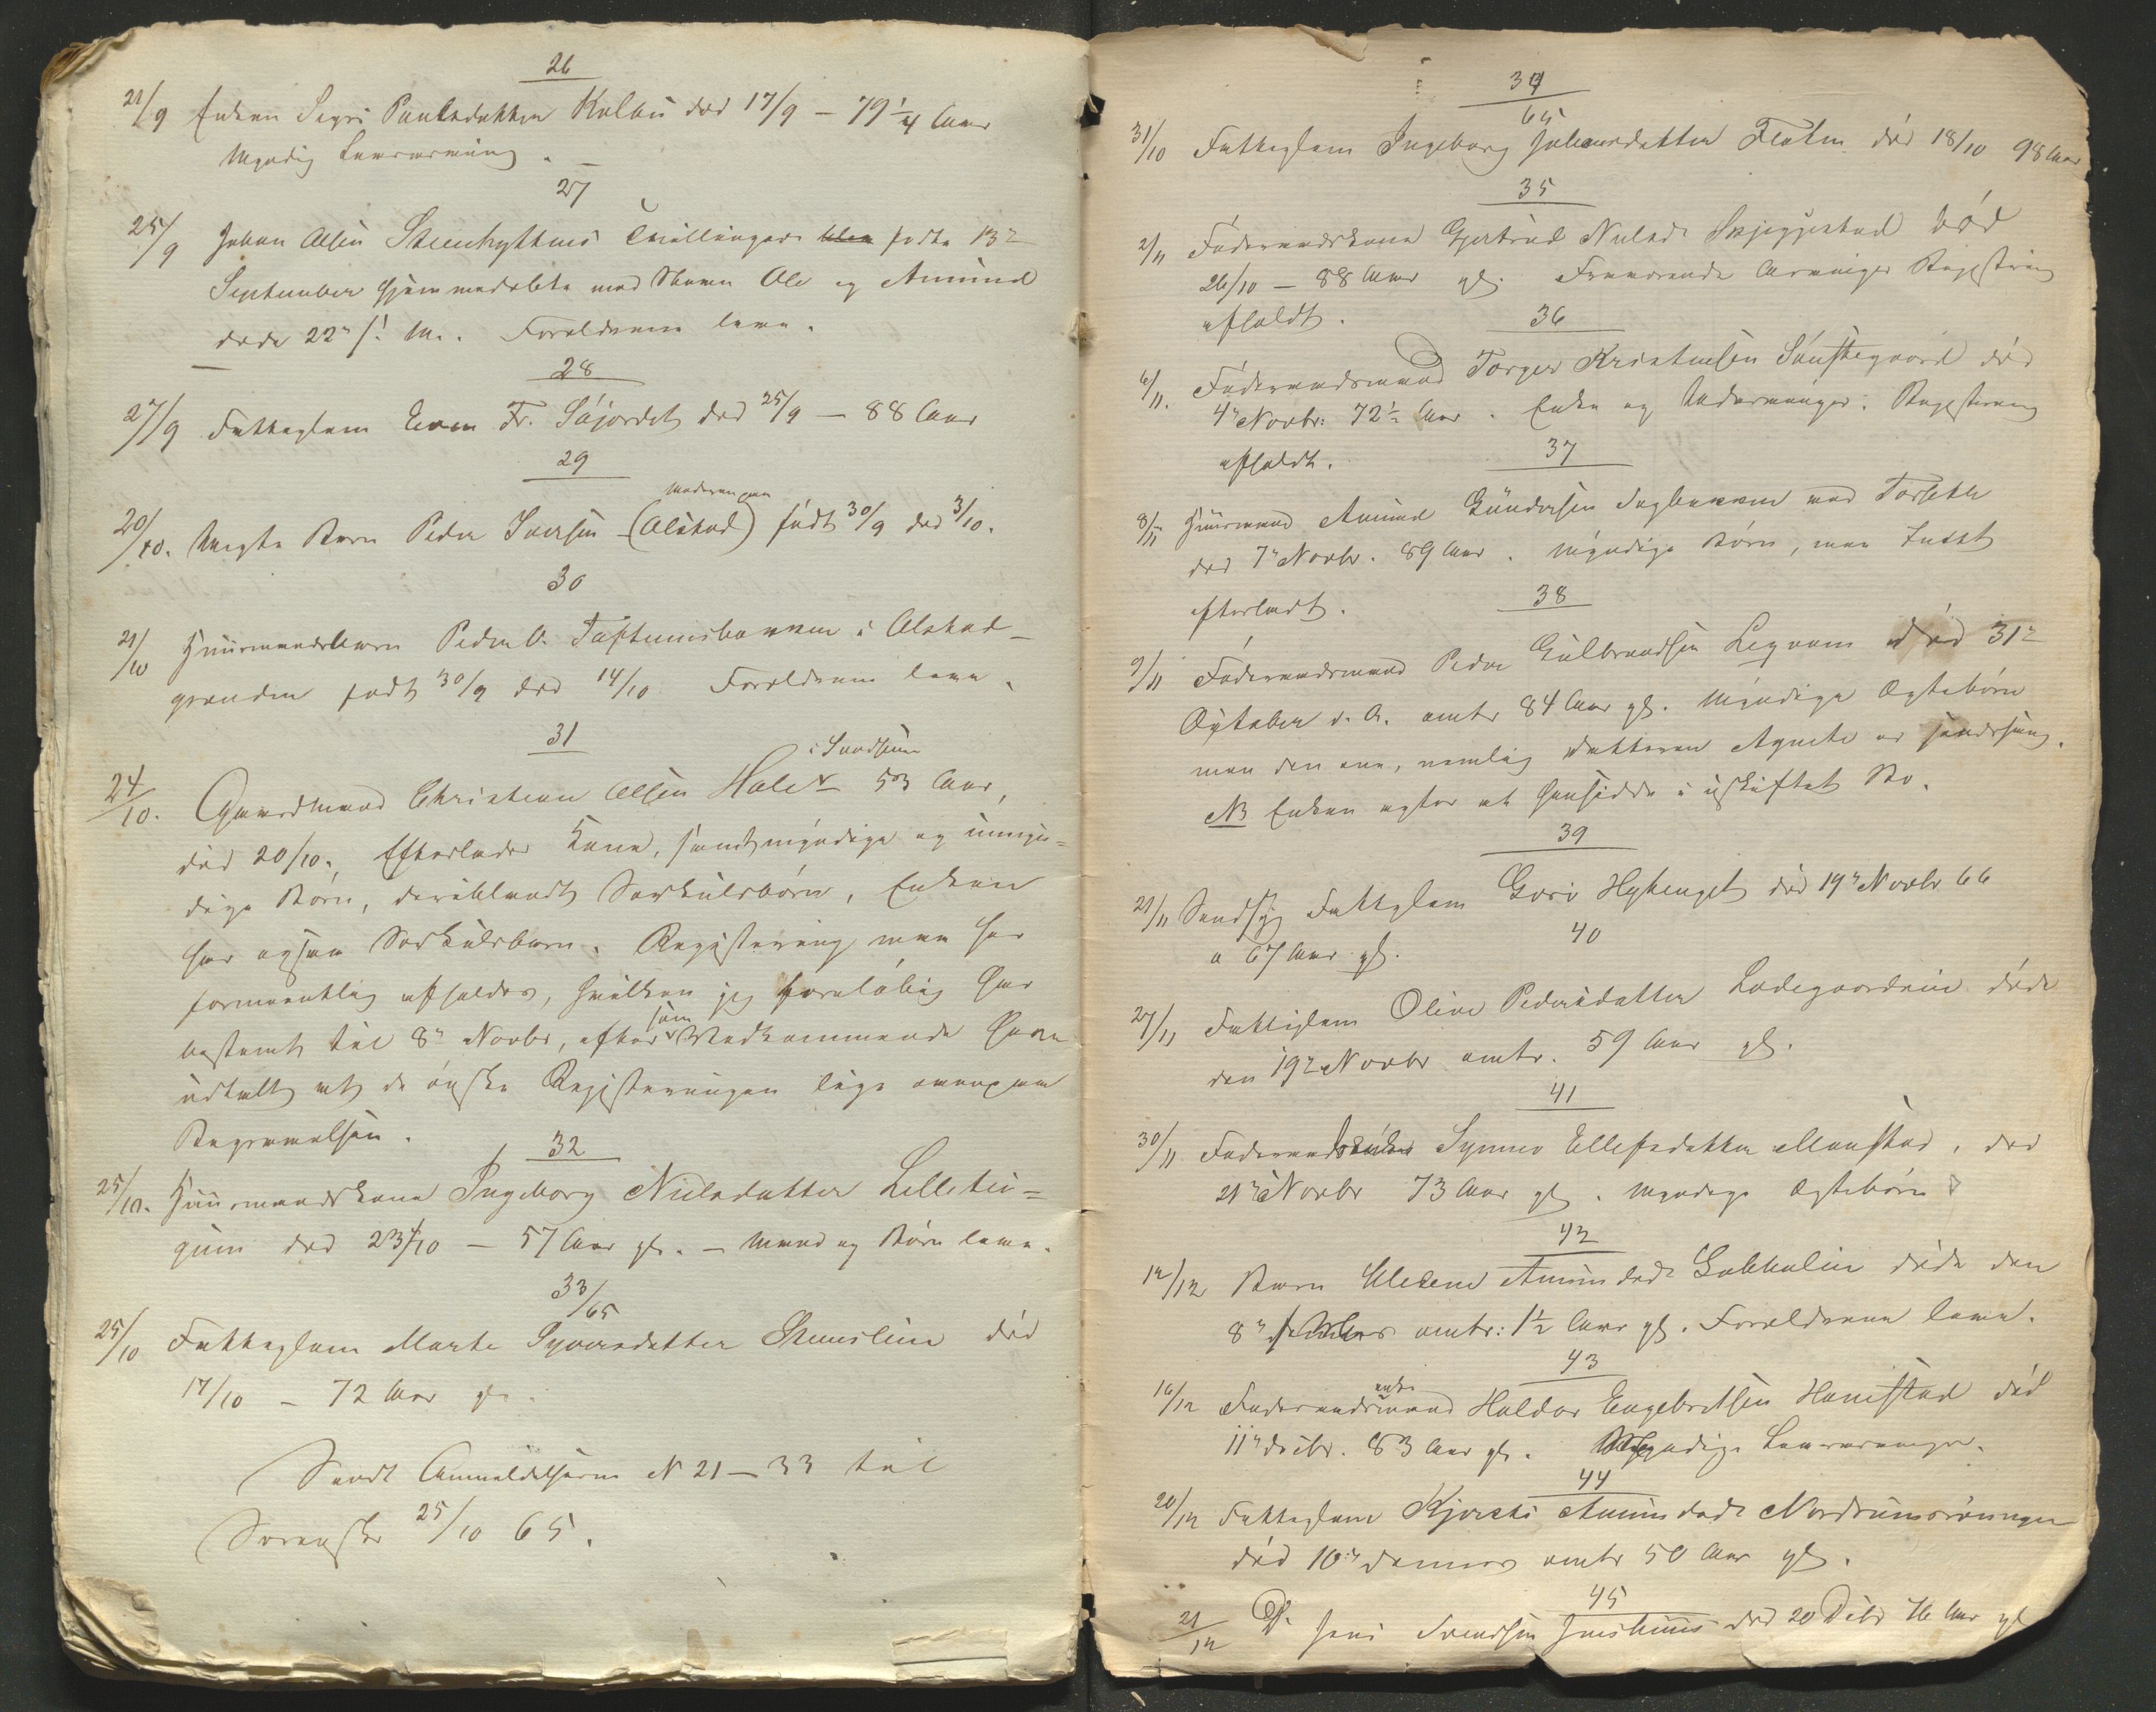 26
21/9 Enken Sigri Paulsdatter Kolbu død 17/9 – 79 1/4 Aar
Myndig Livsarving.
27
25/9 Johan Olsen Steenhyttens Tvillinger fødte 13de
September hjemmedøbte med Navn Ole og Amund
døde 22de s. M. Forældrene leve.
28
27/9 Fattiglem Even Fr. Søjordet død 25/9 – 88 Aar
29
20/10. Uægte Barn Peder Iversen (Alstad) født 30/9 død 3/10.
30
21/10 Huusmandsbarn Peder O. Toftumsbakken i Alstad-
grænden født 30/9 død 14/10 Forældrene leve.
31
i Sundheim
24/10. Gaardmand Christian Olsen Hole 53 Aar,
død 20/10. Efterlader Kone, samt myndige og umyn-
dige Børn, deriblandt Særkulsbørn, Enken
har ogsaa Særkulsbarn. Registrering maa her
formeentlig afholdes, hvilken jeg foreløbig har
bestemt til 8de Novbr, efter som Vedkommende have
udtalt at de ønske Registreringen lige ovenpaa
Begravelsen.
32
25/10. Huusmandskone Ingeborg Nielsdatter Lilletei-
gum død 23/10 – 57 Aar gl. – Mand og Børn leve.
33/65
25/10 Fattiglem Marte Syversdatter død
17/10 – 72 Aar gl.
Sendt Anmeldelserne N 21 – 33 til
Sorenskr 25/10 65.
34
65
31/10 Fattiglem Ingeborg Johannesdatter Floten død 18/10 98 Aar
35
2/11 Føderaadskone Gjertrud Nielsdr Skjeggestad død
26/10 – 88 Aar gl. Fraværende Arvinger Registrering
afholdt.
36
6/11. Føderaadsmand Torger Kristensen Sønstegaard død
4de Novbr: 72½ Aar. Enke og Udarvinger. Registrering
afholdt.
37
8/11 Huusmand Amund Gundersen ved Torsethe
død 7de Novbr. 89 Aar. Myndige Børn, men Intet
efterladt.
38
9/11 Føderaadsmand Peder Gulbrandsen Legvam død 31te
October d. A. omtr 84 Aar gl. Myndige Ægtebørn
men den ene, nemlig Datteren Agnete er
NB Enken agter at hensidde i uskiftet Bo.
39
21/11 Sindsyg Fattiglem Goro Hykenget død 19de Novbr 66
a 67 Aar gl.
40
27/11 Fattiglem Oline Pedersdatter Ladegaardeie døde
den 19de Novbr omtr. 59 Aar gl.
41
30/11 Føderaadsenke Synnev Ellefsdatter Monstad, død
21de Novbr 73 Aar gl. Myndige Ægtebørn
42
12/12 Barn Helene Amundsdr døde den
8de omtr: 1½ Aar gl. Forældrene leve.
43
enke
16/12 Føderaadsmand Haldor Engebretsen Hanestad død
11te Decbr. 83 Aar gl. Myndige Livsarvinger.
44
20/12 Fattiglem Kjersti Amundsdr Nordrumsrønningen
død 10de dennes omtr 50 Aar gl.
45
21/12 Jens Svendsen død 20 Decbr 76 Aar gl